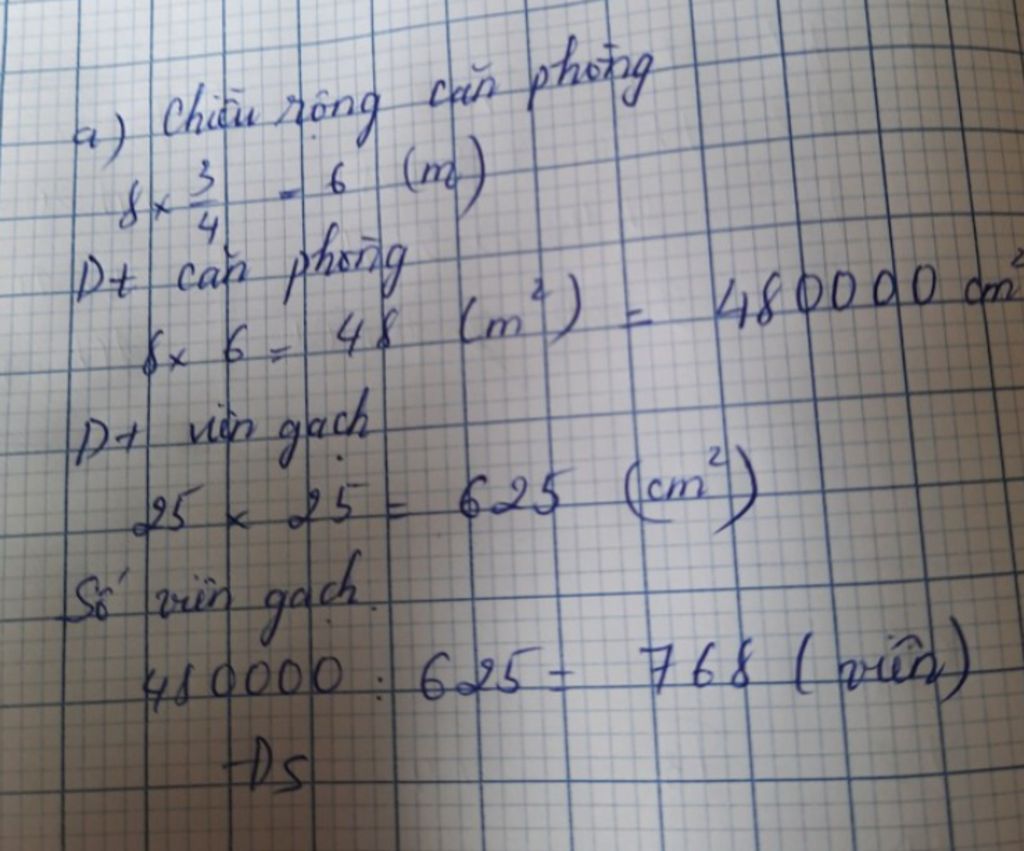 a) Chiều rộng căn phòng
8 × 3/4 = 6 (m)
Dt căn phòng
8 × 6 = 48 (m²) = 480000 cm²
Dt viên gạch
25 × 25 = 625 (cm²)
Số viên gạch.
480000 : 625 = 768 (viên)
ĐS